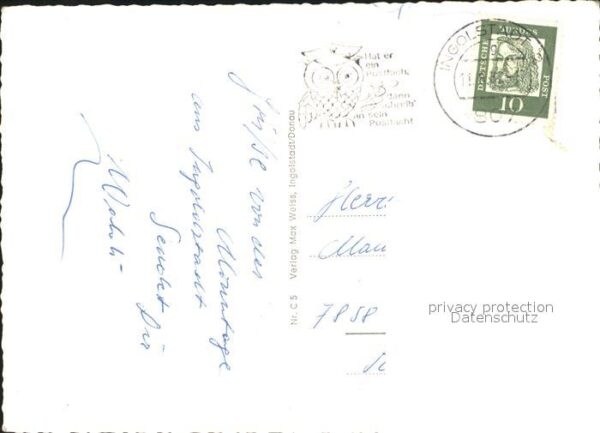 Grüße von der
Montage
aus Ingolstadt
Sendet Dir
Nr. C 5 Verlag Max Weiss, Ingolstadt/Donau
Hat er
ein
Postfach,
dann
schreib'
an sein
Postfach!
INGOLSTADT
807
DEUTSCHE BUNDESPOST
10
Herr
Man
7858
privacy protection
Datenschutz